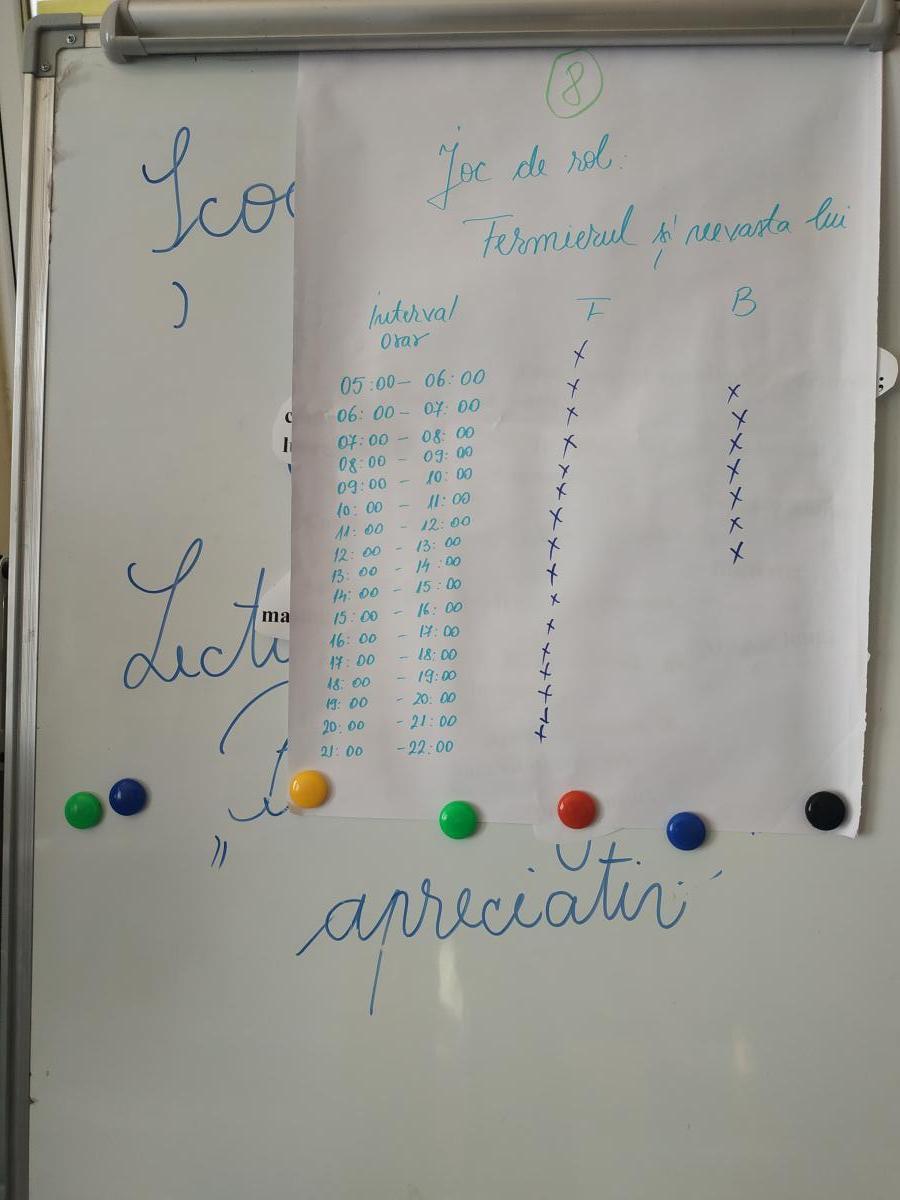 8
Joc de rol:
Fermierul și nevasta lui
Interval orar F B
05:00 – 06:00 x
06:00 – 07:00 x x
07:00 – 08:00 x x
08:00 – 09:00 x x
09:00 – 10:00 x x
10:00 – 11:00 x x
11:00 – 12:00 x x
12:00 – 13:00 x x
13:00 – 14:00 x
14:00 – 15:00 x
15:00 – 16:00 x
16:00 – 17:00 x
17:00 – 18:00 x
18:00 – 19:00 x
19:00 – 20:00 x
20:00 – 21:00 x
21:00 – 22:00
ma
apreciativ